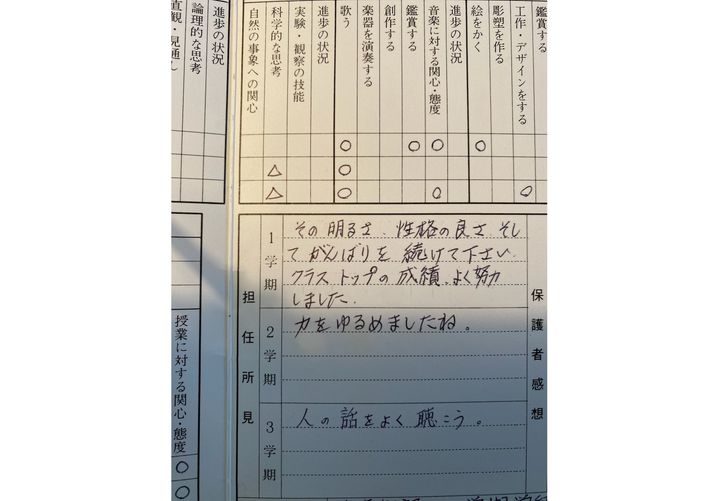 鑑賞する
工作・デザインをする
彫塑を作る
絵をかく
進歩の状況
音楽に対する関心・態度
鑑賞する
創作する
楽器を演奏する
歌う
進歩の状況
実験・観察の技能
科学的な思考
自然の事象への関心
進歩の状況
論理的な思考
直観・見通し
○ ○ ○ ○
△ ○
△ ○ ○ ○
担任所見
1学期
その明るさ、性格の良さ、そし
てがんばりを続けて下さい。
クラストップの成績、よく努力
しました。
2学期
力をゆるめましたね。
3学期
人の話をよく聴こう。
保護者感想
授業に対する関心・態度
○
○